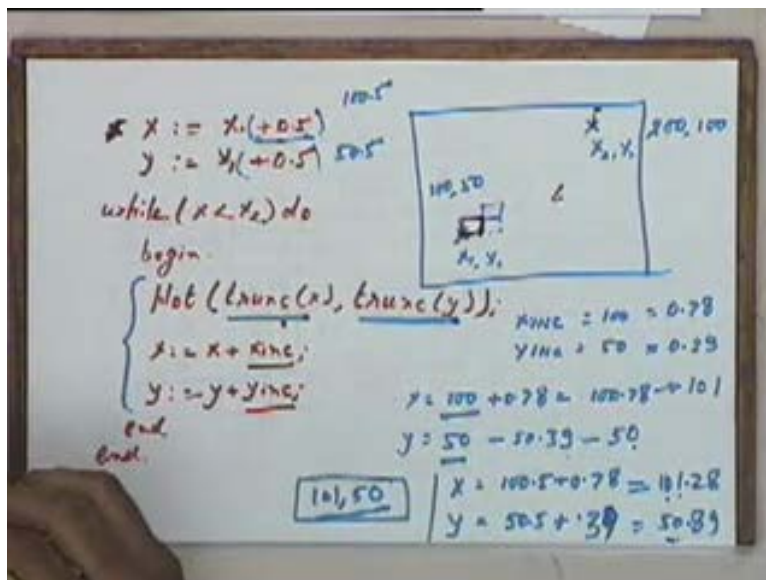 x := x₁(+0.5) 100.5
y := y₁(+0.5) 50.5
while (x < x₂) do
begin
Plot (trunc(x), trunc(y));
x := x + xinc;
y := y + yinc;
end
end.
200, 100
x₂, y₂
100, 50
x₁, y₁
XINC = 100 = 0.78
YINC = 50 = 0.39
x = 100 + 0.78 = 100.78 → 101
y = 50 - 50.39 - 50
x = 100.5 + 0.78 = 101.28
y = 50.5 + .39 = 50.89
101, 50